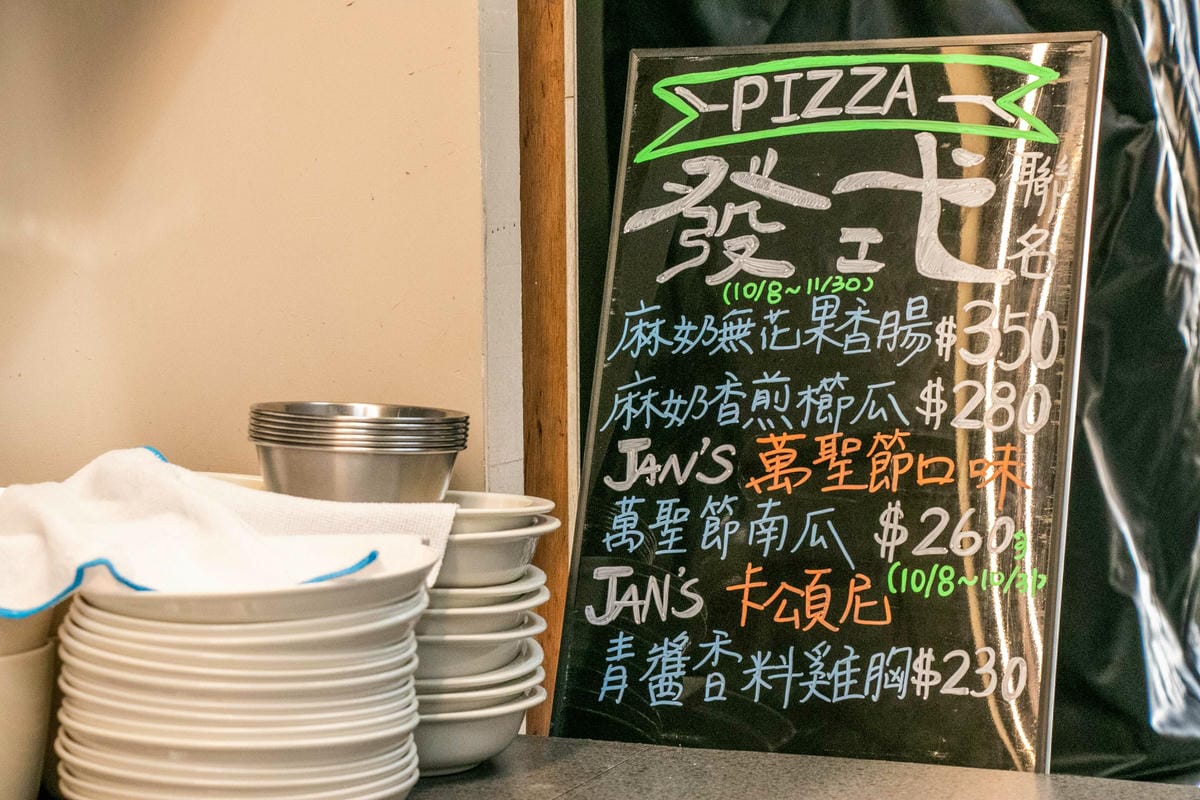 PIZZA
發式 聯名
(10/8~11/30)
麻奶無花果香腸 $350
麻奶香煎櫛瓜 $280
JAN'S 萬聖節口味
萬聖節南瓜 $260
(10/8~10/31)
JAN'S 卡頌尼
青醬香料雞胸 $230